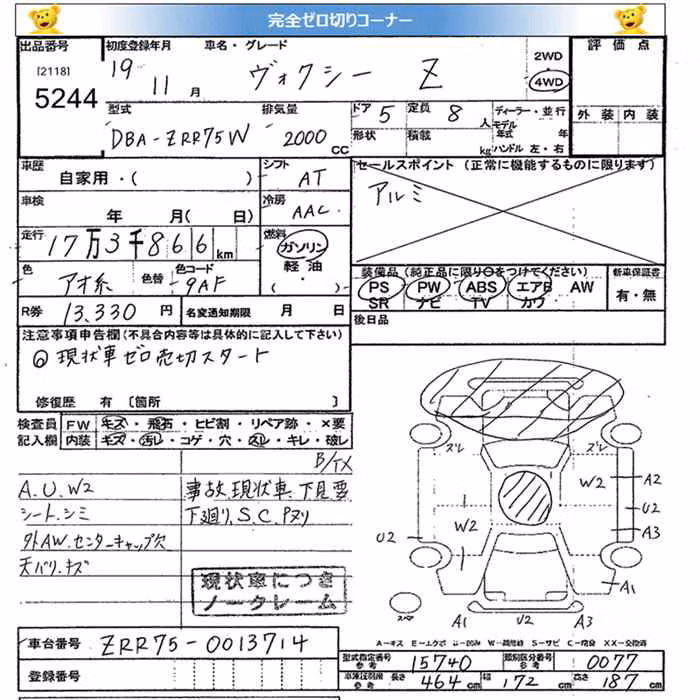 完全ゼロ切りコーナー
出品番号
[2118]
5244
初度登録年月 車名・グレード
19 11 月 ヴォクシー Z
2WD
4WD
評価点
外装 内装
型式 排気量
DBA-ZRR75W 2000 CC
ドア 5 定員 8 人
形状 積載 kg
ディーラー・並行
モデル年式 年
ハンドル 左・右
車歴
自家用・( )
シフト
AT
セールスポイント (正常に機能するものに限ります)
アルミ
車検
年 月( 日)
冷房
AAC.
走行
17万3千866km
燃料
ガソリン
軽油
・( )
色 色替 色コード
アオ系 9AF
装備品(純正品に限り○をつけてください)
PS PW ABS エアB AW
SR ナビ TV カワ
新車保証書
有・無
R券 13.330 円 名変通知期限 月 日
後日品
注意事項申告欄(不具合内容等は具体的に記入して下さい)
◎現状車ゼロ売切スタート
修復歴 有 〔箇所 〕
検査員 FW キズ・飛石・ヒビ割・リペア跡・×要
記入欄 内装 キズ・汚レ・コゲ・穴・スレ・キレ・破レ
B/TX
A.U.W2
シート.シミ
外AW.センターキャップ欠
天バリ.キズ
事故.現状車.下見要
下廻り.S.C.Pヌリ
現状車につき
ノークレーム
ズレ ズレ
W2 A2
U2
W2 A3
U2
A1
スペア A1 U2 A3
車台番号 ZRR75-0013714
登録番号
型式指定番号 参考 15740 類別区分番号 参考 0077
車凍証制限 参考 長さ 464 cm 幅 172 cm 高さ 187 cm